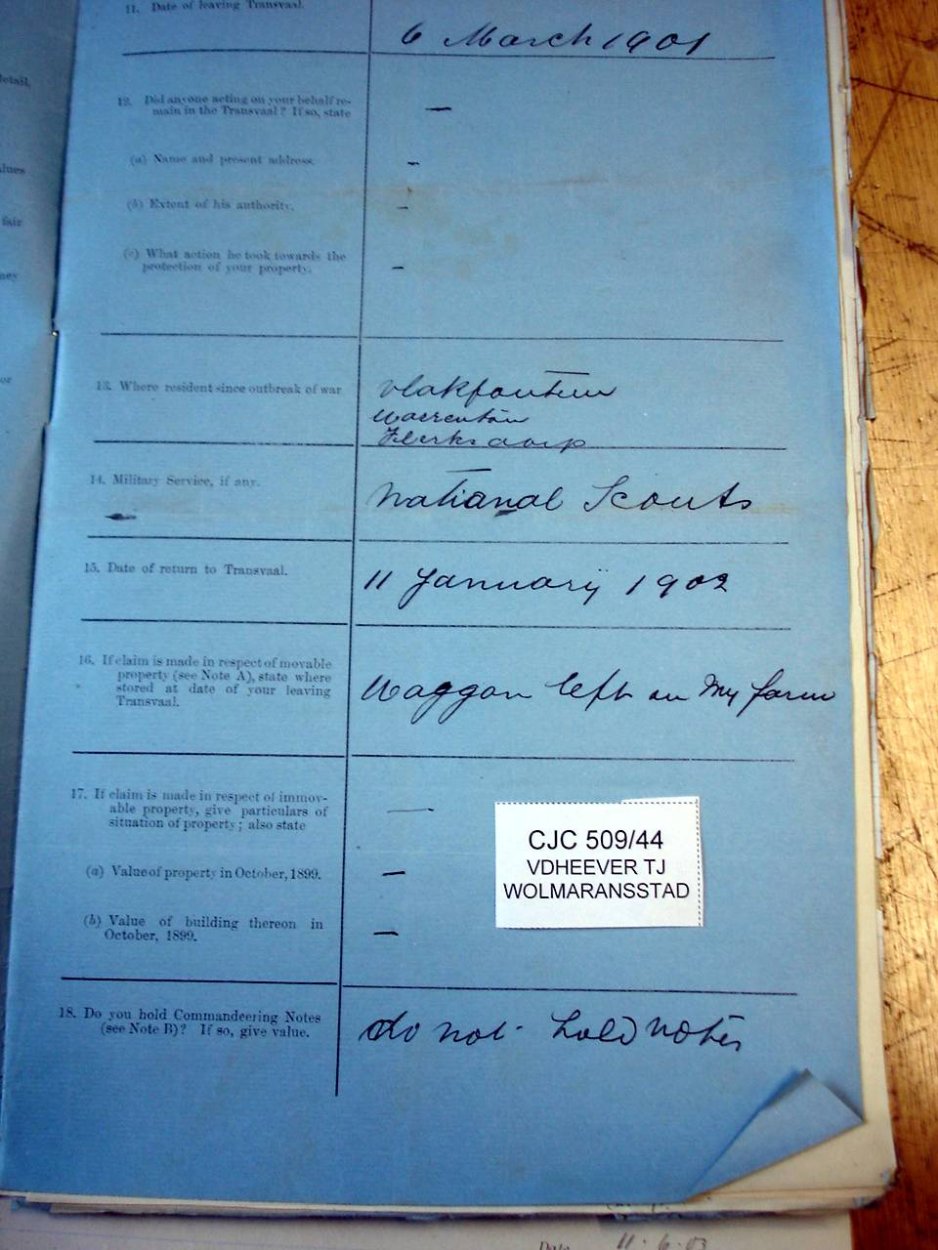 etail,
lues
fair
ney
or
11. Date of leaving Transvaal.
6 March 1901
12. Did anyone acting on your behalf re-
main in the Transvaal? If so, state
—
(a) Name and present address.
-
(b) Extent of his authority.
-
(c) What action he took towards the
protection of your property.
-
13. Where resident since outbreak of war
Vlakfontein
Warrenton
Klerksdorp
14. Military Service, if any.
National Scouts
15. Date of return to Transvaal.
11 January 1902
16. If claim is made in respect of movable
property (see Note A), state where
stored at date of your leaving
Transvaal.
Waggon left on My farm
17. If claim is made in respect of immov-
able property, give particulars of
situation of property; also state
—
(a) Value of property in October, 1899.
—
(b) Value of building thereon in
October, 1899.
—
CJC 509/44
VDHEEVER TJ
WOLMARANSSTAD
18. Do you hold Commandeering Notes
(see Note B)? If so, give value.
do not hold notes
Date 11.6.03